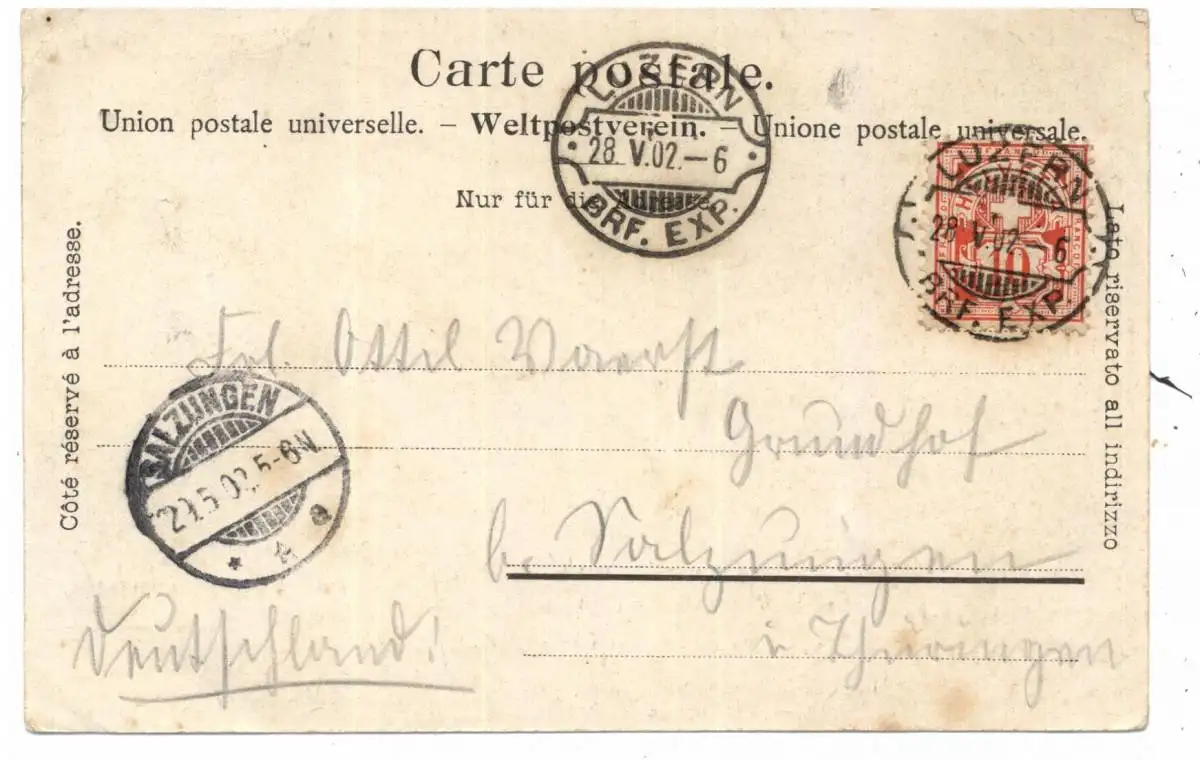 Carte postale.
Union postale universelle. – Weltpostverein. – Unione postale universale.
Nur für die Adresse.
Côté réservé à l'adresse.
Lato riservato all indirizzo
LUZERN
28. V. 02. – 6
BRF. EXP.
LUZERN
28 V 02 – 6
BRF. EXP.
10
Frl. Ottil Vaerst
Grundhof
b. Salzungen
i Thüringen
Deutschland!
SALZUNGEN
29.5.02. 5-6N
* * a